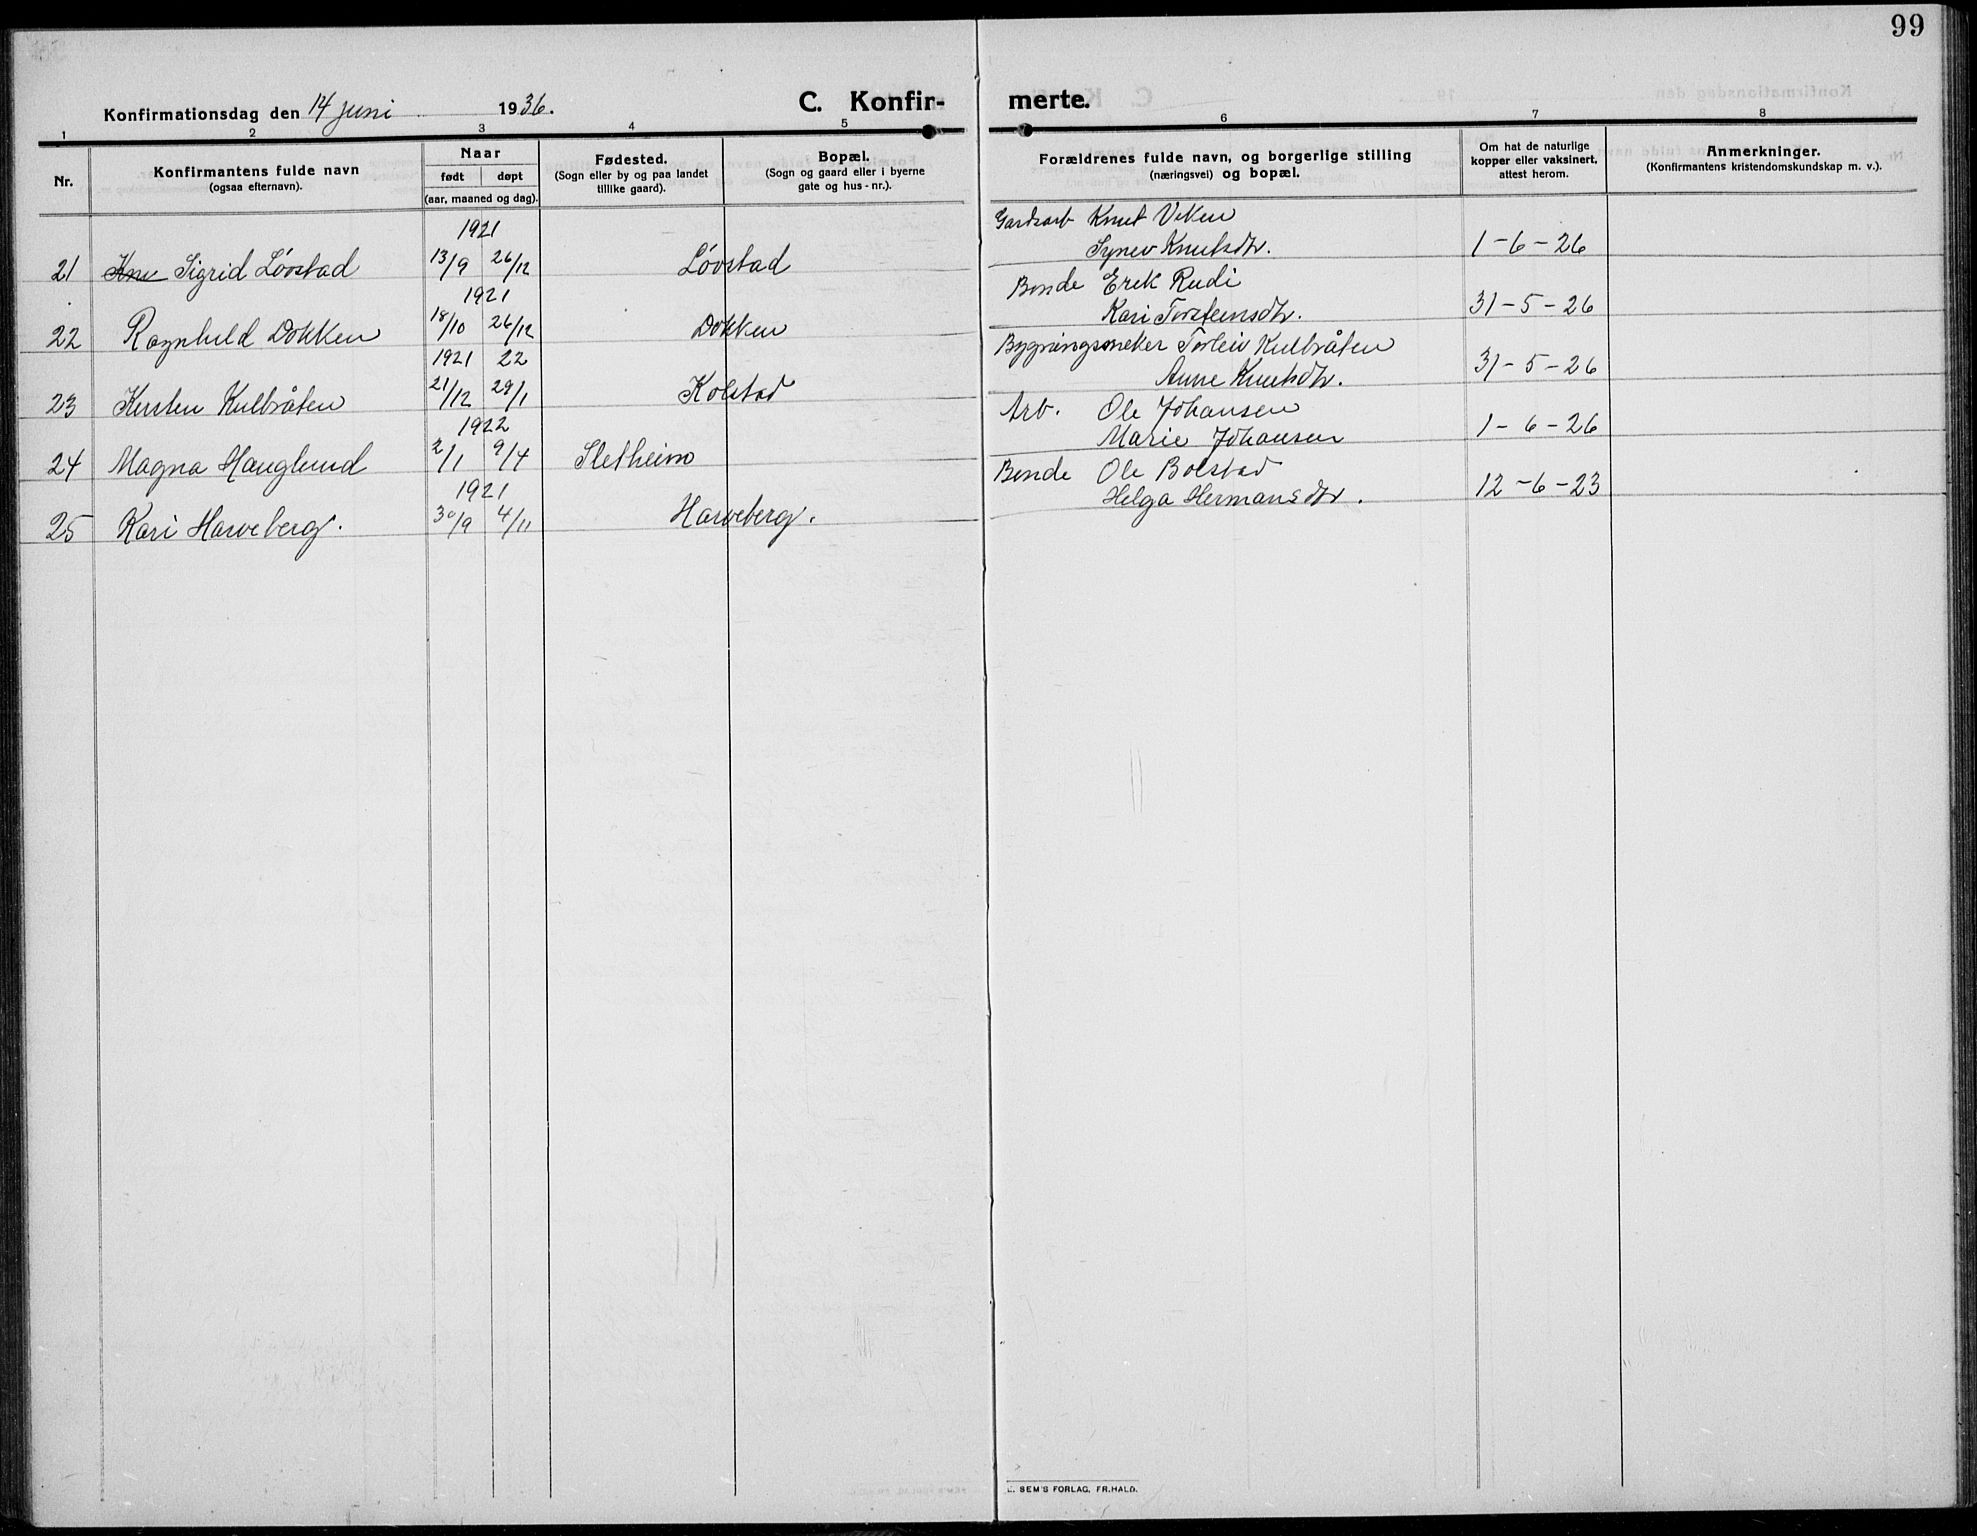 99
Konfirmationsdag den 14 juni 1936.
C. Konfir-
merte.
1 2 3 4 5 6 7 8
Nr.
Konfirmantens fulde navn
(ogsaa efternavn).
Naar
født døpt
(aar, maaned og dag).
Fødested.
(Sogn eller by og paa landet
tillike gaard).
Bopæl.
(Sogn og gaard eller i byerne
gate og hus-nr.).
Forældrenes fulde navn, og borgerlige stilling
(næringsvei) og bopæl.
Om hat de naturlige
kopper eller vaksinert,
attest herom.
Anmerkninger.
(Konfirmantens kristendomskundskap m. v.).
1921
Gardsarb Knut Viken
21 Knu Sigrid Lövstad 13/9 26/12 Lövstad Synev Knutsdtr. 1-6-26
1921
Bonde Erik Rudi
22 Ragnhild Dokken 18/10 26/12 Dokken Kari Torsteinsdtr. 31-5-26
1921 22
Bygningssneker Torleiv Kulbråten
23 Kirsten Kulbråten 21/12 29/1 Kolstad Anne Knutsdtr. 31-5-26
1922
Arb. Ole Johansen
24 Magna Hauglund 2/1 9/4 Sletheim Marie Johansen 1-6-26
1921
Bonde Ole Bolstad
25 Kari Harveberg. 30/9 4/11 Harveberg. Helga Hermansdtr. 12-6-23
E. SEM'S FORLAG, FR.HALD.